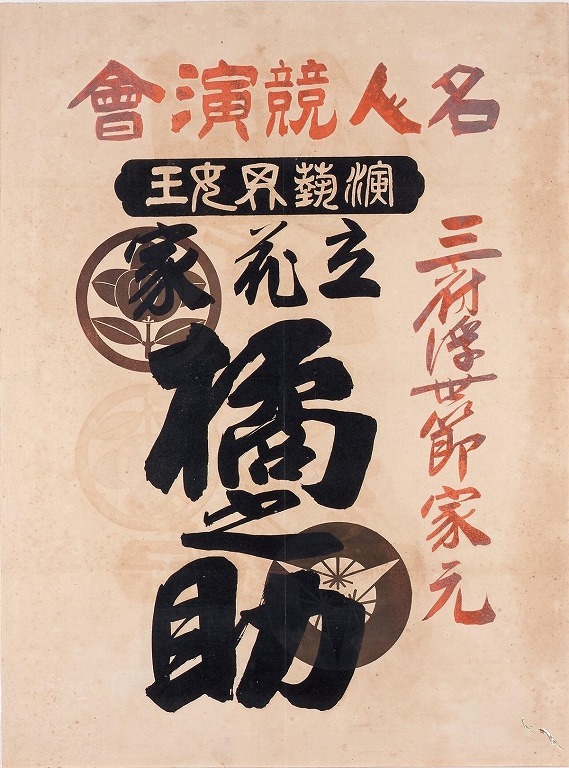 名人競演會
演藝界女王
三府浮世節家元
立花家
橘之助